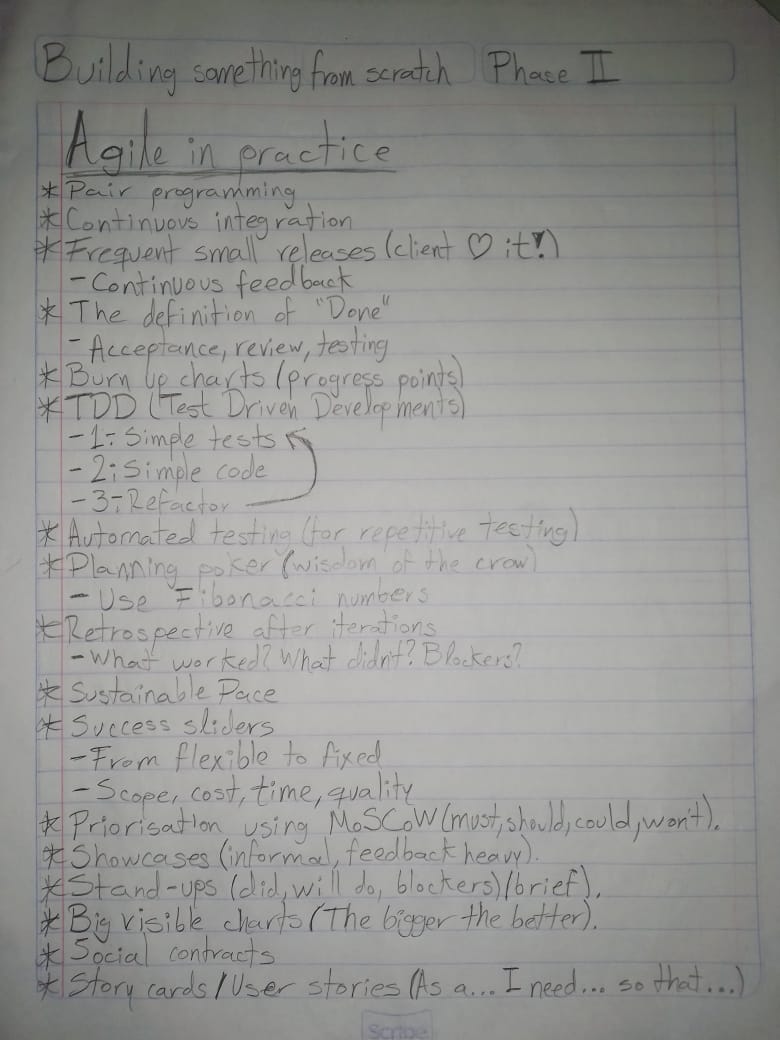 Building something from scratch Phase II
Agile in practice
* Pair programming
* Continuous integration
* Frequent small releases (client ♡ it!)
- Continuous feedback
* The definition of "Done"
- Acceptance, review, testing
* Burn up charts (progress points)
* TDD (Test Driven Developments)
- 1: Simple tests
- 2: Simple code
- 3: Refactor
* Automated testing (for repetitive testing)
* Planning poker (wisdom of the crow)
- Use Fibonacci numbers
* Retrospective after iterations
- What worked? What didn't? Blockers?
* Sustainable Pace
* Success sliders
- From flexible to fixed
- Scope, cost, time, quality
* Priorisation using MoSCoW (must, should, could, won't).
* Showcases (informal, feedback heavy).
* Stand-ups (did, will do, blockers) (brief).
* Big visible charts (The bigger the better).
* Social contracts
* Story cards / User stories (As a... I need... so that...)
Scribe